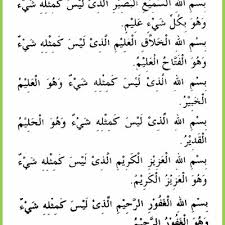 بِسْمِ اللهِ السَّمِيْعِ الْبَصِيْرِ الَّذِىْ لَيْسَ كَمِثْلِهِ شَيْءٌ
وَهُوَ بِكُلِّ شَيْءٍ عَلِيْمٌ.
بِسْمِ اللهِ الْخَلَّاقِ الْعَلِيْمِ الَّذِىْ لَيْسَ كَمِثْلِهِ شَيْءٌ
وَهُوَ الْفَتَّاحُ الْعَلِيْمُ.
بِسْمِ اللهِ الَّذِىْ لَيْسَ كَمِثْلِهِ شَيْءٌ وَهُوَ الْعَلِيْمُ
الْخَبِيْرُ.
بِسْمِ اللهِ الَّذِىْ لَيْسَ كَمِثْلِهِ شَيْءٌ وَهُوَ الْحَلِيْمُ
الْقَدِيْرُ.
بِسْمِ اللهِ الْعَزِيْزِ الْكَرِيْمِ الَّذِىْ لَيْسَ كَمِثْلِهِ شَيْءٌ
وَهُوَ الْعَزِيْزُ الْكَرِيْمُ.
بِسْمِ اللهِ الْغَفُوْرِ الرَّحِيْمِ الَّذِىْ لَيْسَ كَمِثْلِهِ شَيْءٌ
وَهُوَ الْغَفُوْرُ الرَّحِيْمُ